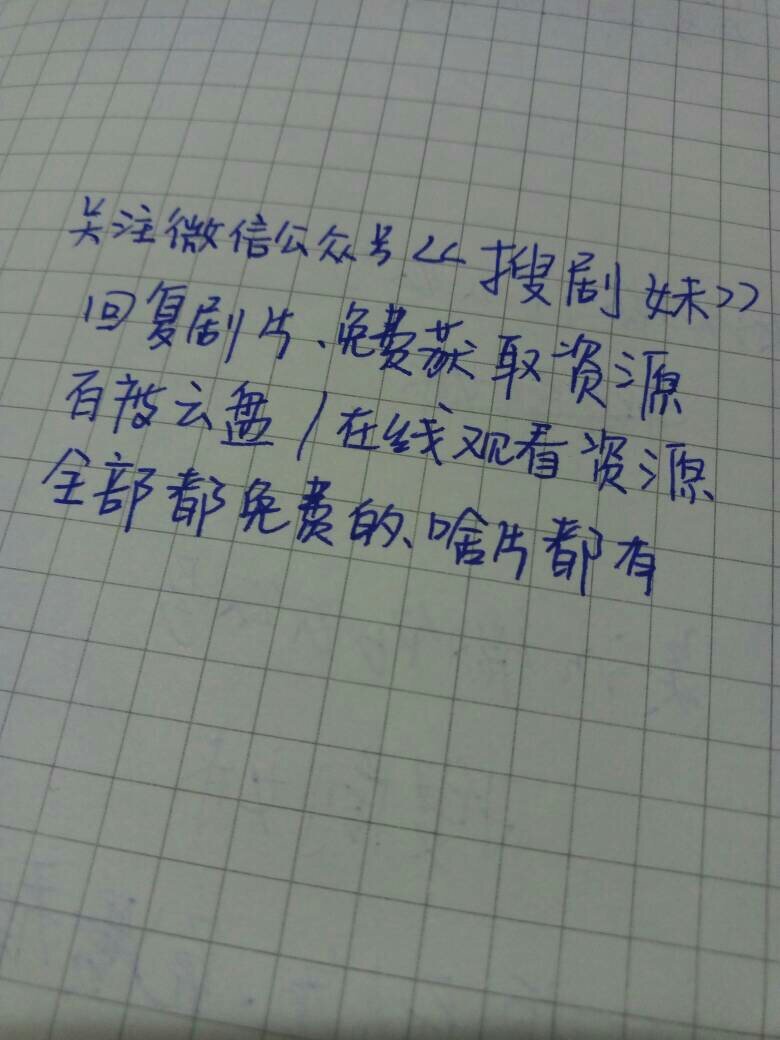 关注微信公众号《搜剧妹》
回复剧片、免费获取资源
百度云盘/在线观看资源
全部都免费的、啥片都有